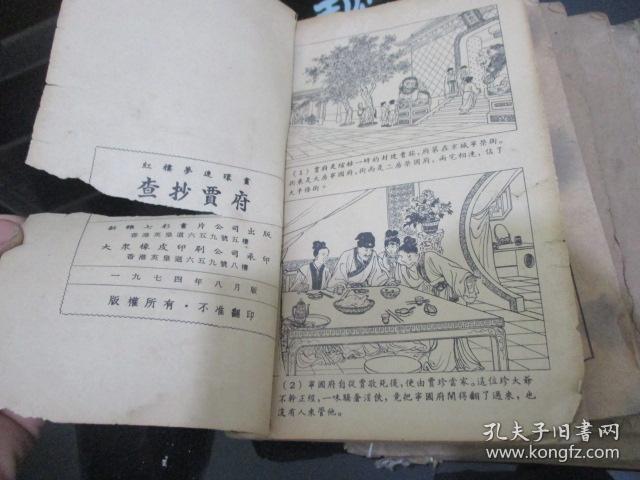 紅樓夢連環畫
查抄賈府
新雅七彩畫片公司出版
香港英皇道六五九號五樓
大衆橡皮印刷公司承印
香港英皇道六五九號八樓
一九七四年八月版
版權所有·不准翻印
(1)賈府是煊赫一時的封建貴族,府第在京城寧榮街。
街東是大房寧國府,街西是二房榮國府,兩宅相連,佔了
大半條街。
(2)寧國府自從賈敬死後,便由賈珍當家。這位珍大爺
不幹正經,一味驕奢淫佚,竟把寧國府鬧得翻了過來,也
沒有人來管他。
孔夫子旧書网